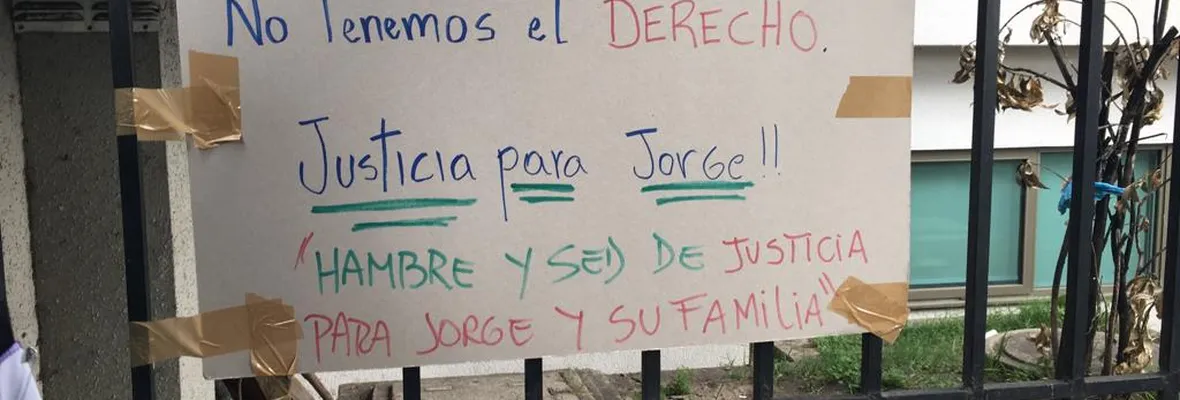 No Tenemos el DERECHO.
Justicia para Jorge!!
"HAMBRE Y SED DE JUSTICIA
PARA JORGE Y SU FAMILIA"